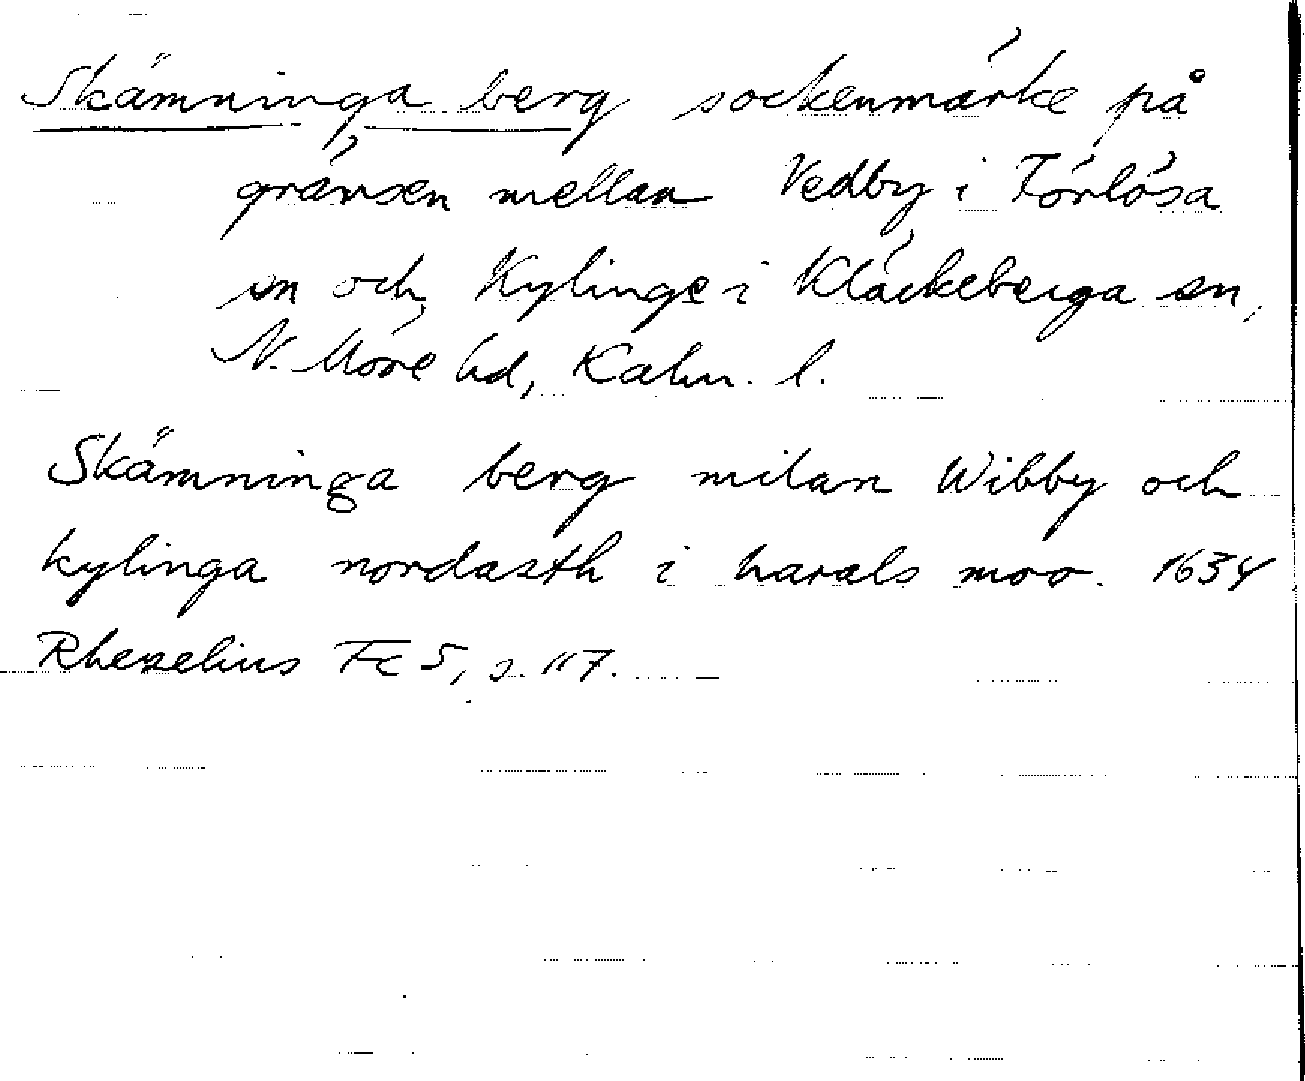 Skämninga berg sockenmärke på
gränsen mellan Vedby i Förlösa
sn och Kylinge i Kläckeberga sn,
N. Möre hd, Kalm. l.
Skämninga berg milan Wibby och
kylinga nordasth i harals moo. 1634
Rhezelius Fc 5, s. 117.